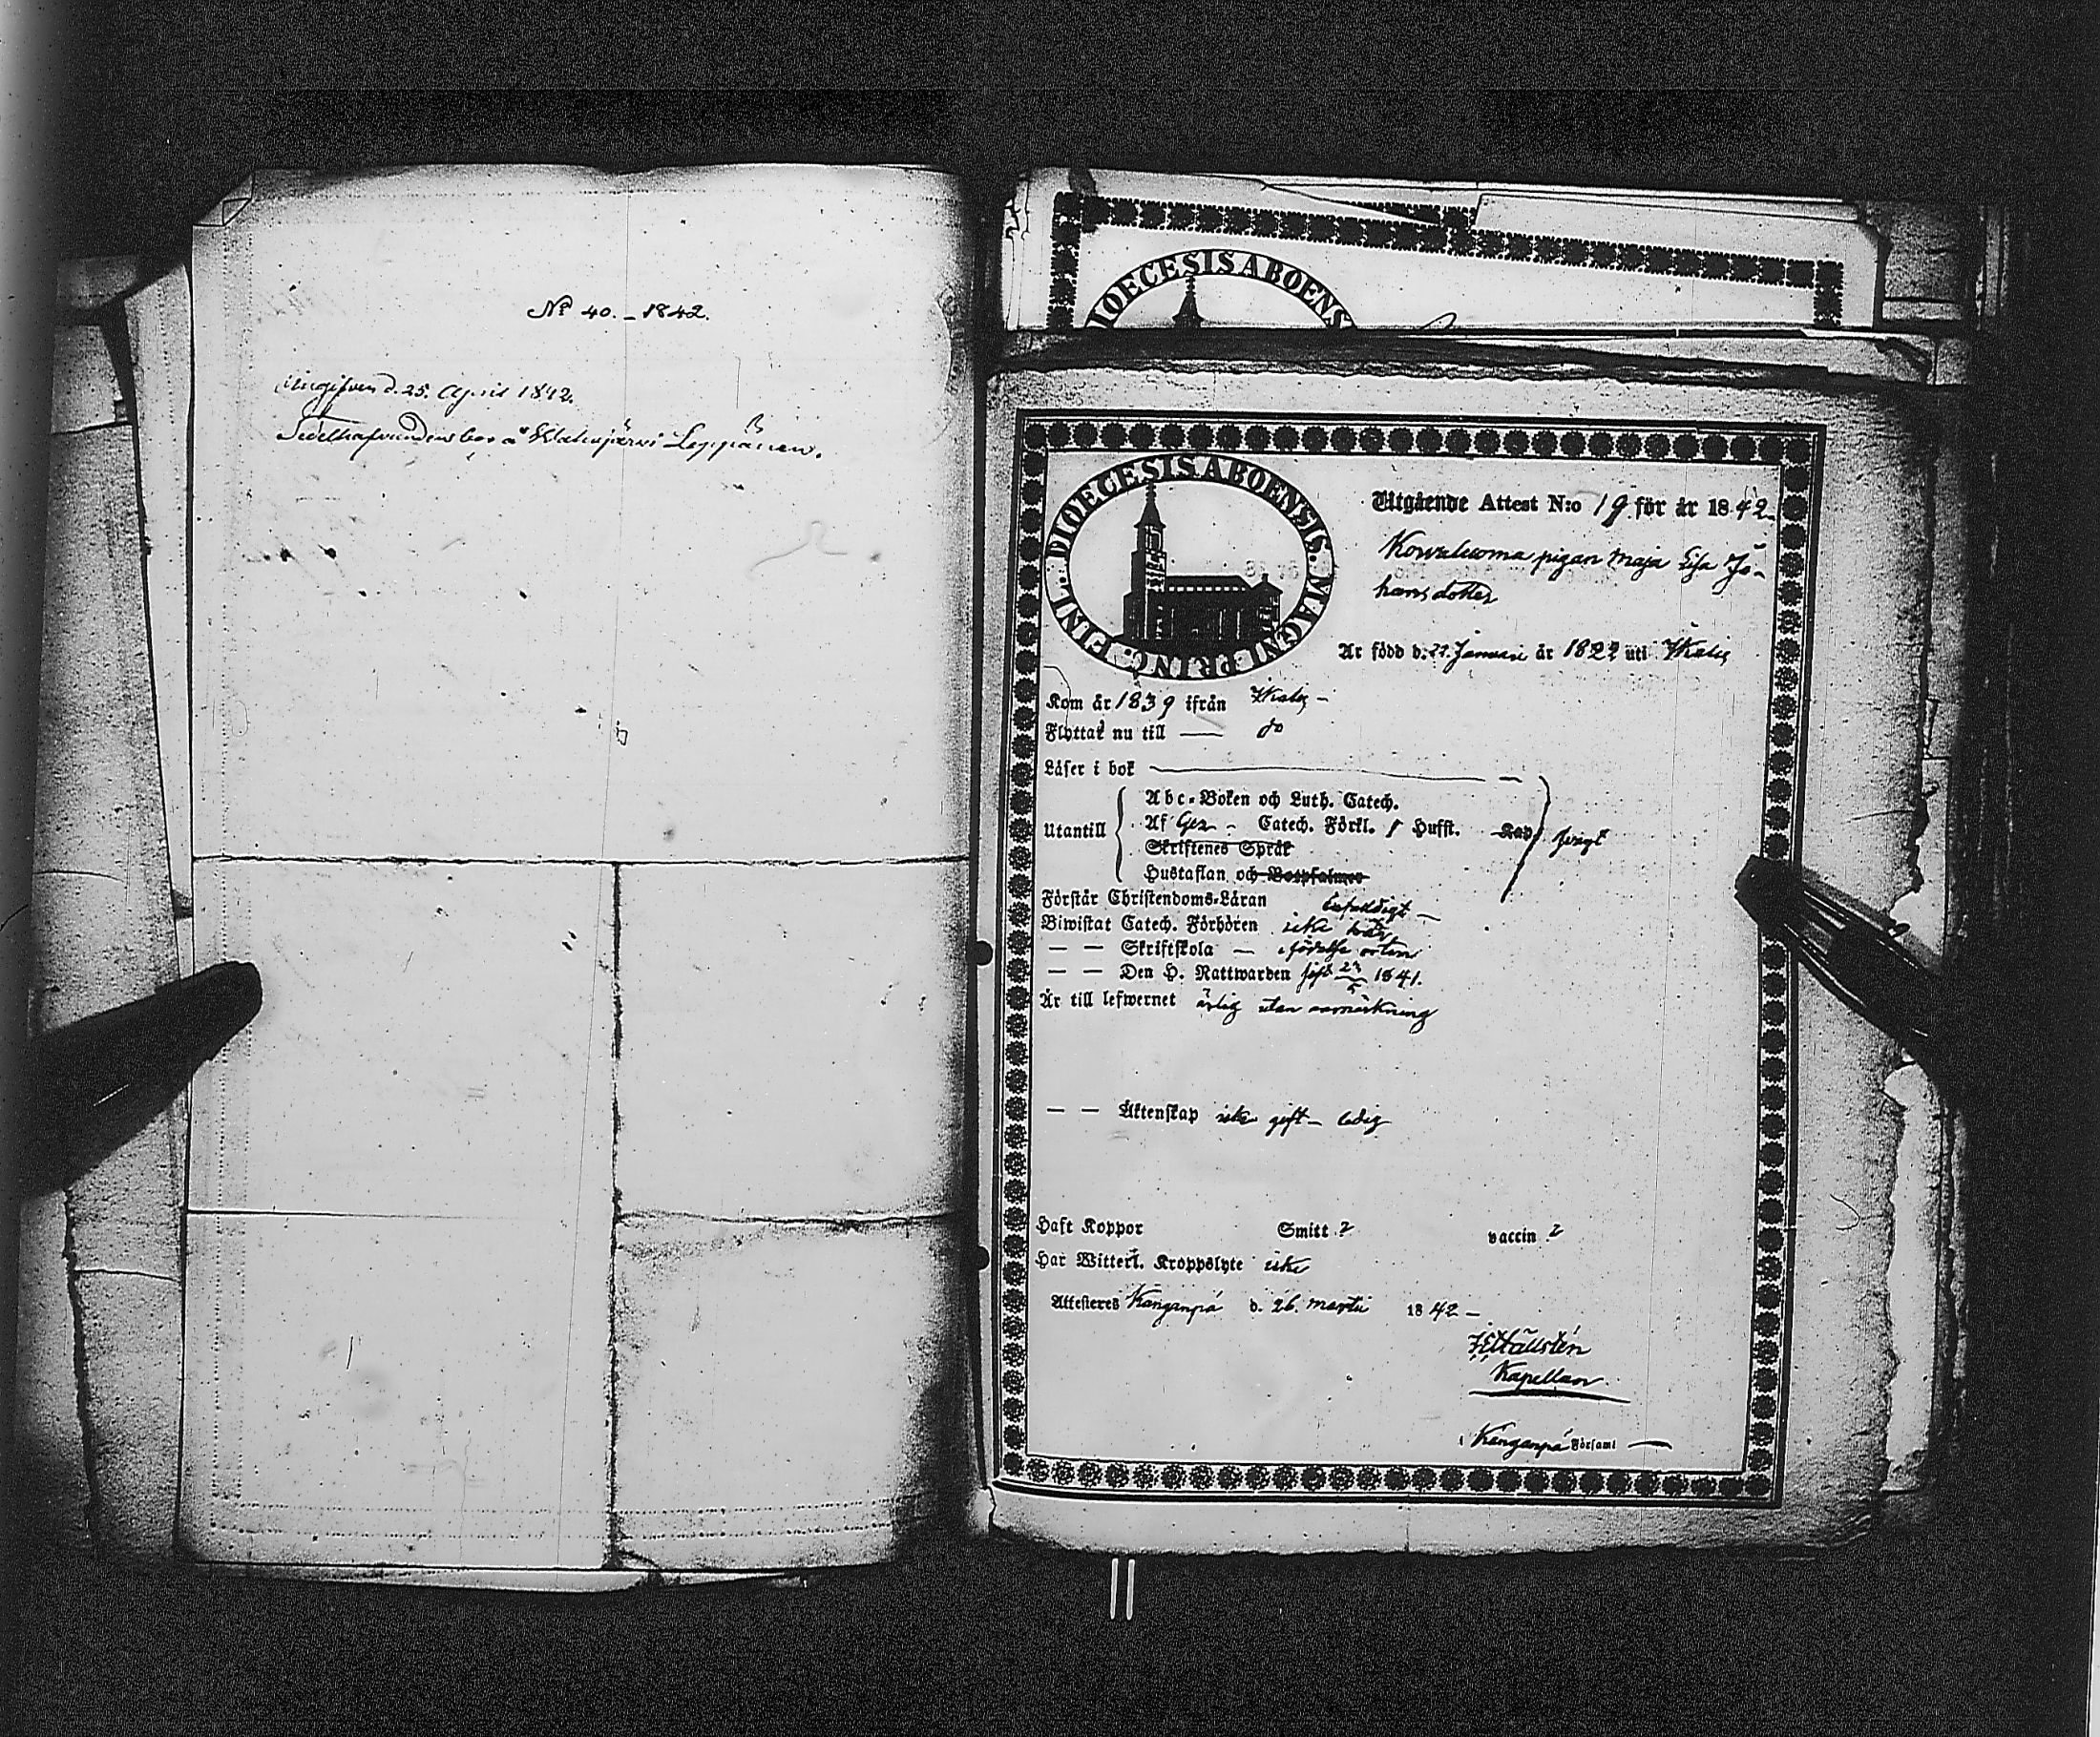 No 40. – 1842.
Ingifven d. 25. April 1842.
Sedelhafvanden bor å Leppänen.
DIOECESIS ABOENS
DIOECESIS ABOENSIS. MAGNI PRINC. FINL.
Utgående Attest N:o 19 för år 1842.
pigan Maja Lisa Jo-
hansdotter
Är född d. 27 Januari år 1822 uti Ikalis
Kom år 1839 ifrån Ikalis –
Flyttat nu till — do
Läser i bok
Utantill
Abc-Boken och Luth. Catech.
Af Gez – Catech. Förkl. / Hufft. Kap.
Skriftenes Språk
Hustaflan och Botpsalmer
Förstår Christendoms-Läran
Biwistat Catech. Förhören icke här
— — Skriftskola — i födelse orten
— — Den H. Nattwarden sist 1841.
Är till lefwernet ärlig utan anmärkning
— — Äktenskap icke gift – ledig
Haft Koppor Smitt ? vaccin ?
Har Witterl. Kroppslyte icke
Attesteras Kanganpä d. 26. Martii 1842 –
Hällstén
Kapellan
i Kanganpä Församl —